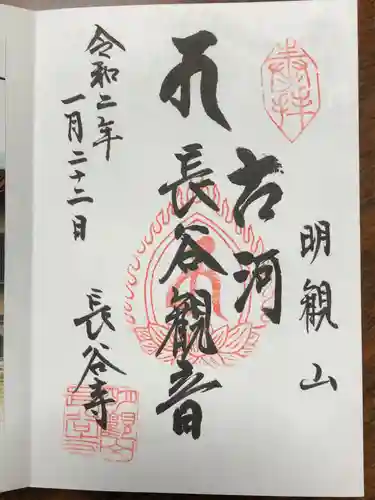 奉拝
明観山
古河
長谷観音
令和二年
一月二十二日
長谷寺